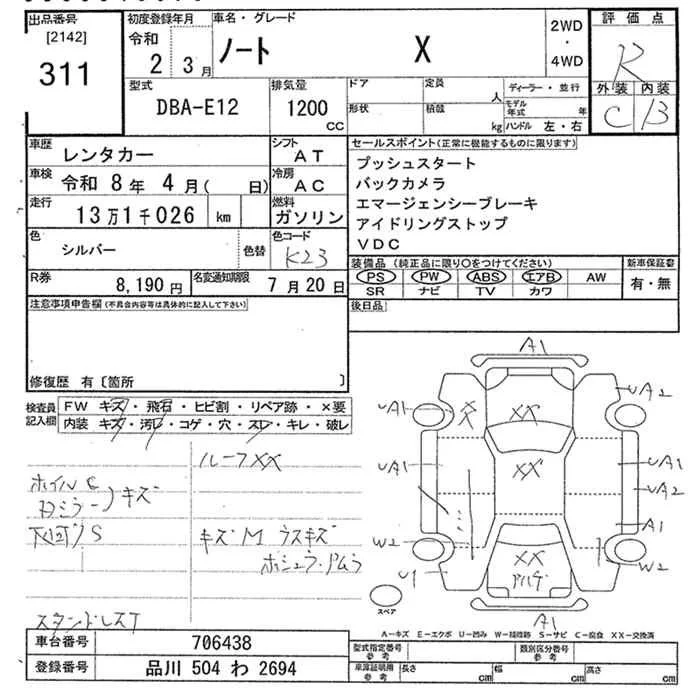 出品番号
[2142]
311
初度登録年月
令和
2 3月
車名・グレード
ノート X
2WD
・
4WD
評価点
R
外装 内装
C B
型式
DBA-E12
排気量
1200
CC
ドア
形状
定員
人
積載
kg
ディーラー・並行
モデル年式 年
ハンドル 左・右
車歴
レンタカー
シフト
AT
車検 令和 8年 4月( 日)
冷房
AC
走行
13万1千026 km
燃料
ガソリン
色
シルバー
色替
色コード
K23
R券
8,190円
名変通知期限
7月20日
セールスポイント(正常に機能するものに限ります)
プッシュスタート
バックカメラ
エマージェンシーブレーキ
アイドリングストップ
VDC
装備品 (純正品に限り○をつけてください)
PS PW ABS エアB AW
SR ナビ TV カワ
新車保証書
有・無
後日品
注意事項申告欄(不具合内容等は具体的に記入して下さい)
修復歴 有〔箇所 〕
検査員記入欄
FW キズ・飛石・ヒビ割・リペア跡・×要
内装 キズ・汚レ・コゲ・穴・スレ・キレ・破レ
ルーフXX
キズ
キズM ウスキズ
A1
UA1
UA1
W2
U1
XX
XX
XX
UA2
UA1
UA2
A1
W2
A1
スペア
A−キズ E−エクボ U−凹み W−補修跡 S−サビ C−腐食 XX−交換済
車台番号 706438
登録番号 品川 504 わ 2694
型式指定番号
参考
類別区分番号
参考
車庫証明用
参考
長さ cm
幅 cm
高さ cm